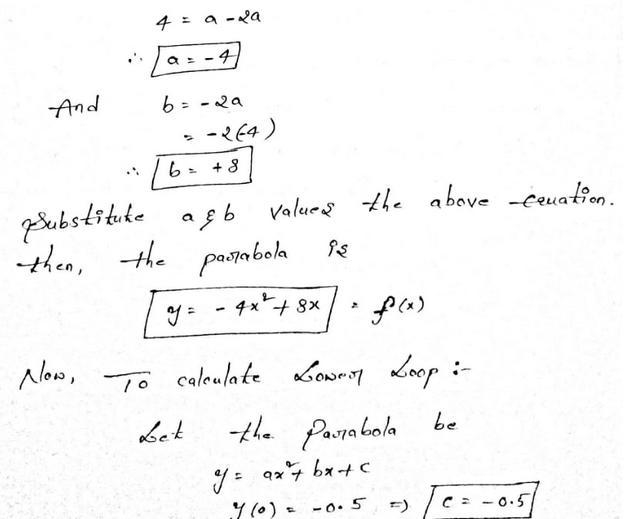 4 = a - 2a
∴ a = -4
And b = -2a
= -2(-4)
∴ b = +8
Substitute a & b values the above equation.
then, the parabola is
y = -4x² + 8x = f(x)
Now, To calculate Lower Loop :-
Let the Parabola be
y = ax² + bx + c
y(0) = -0.5 => c = -0.5